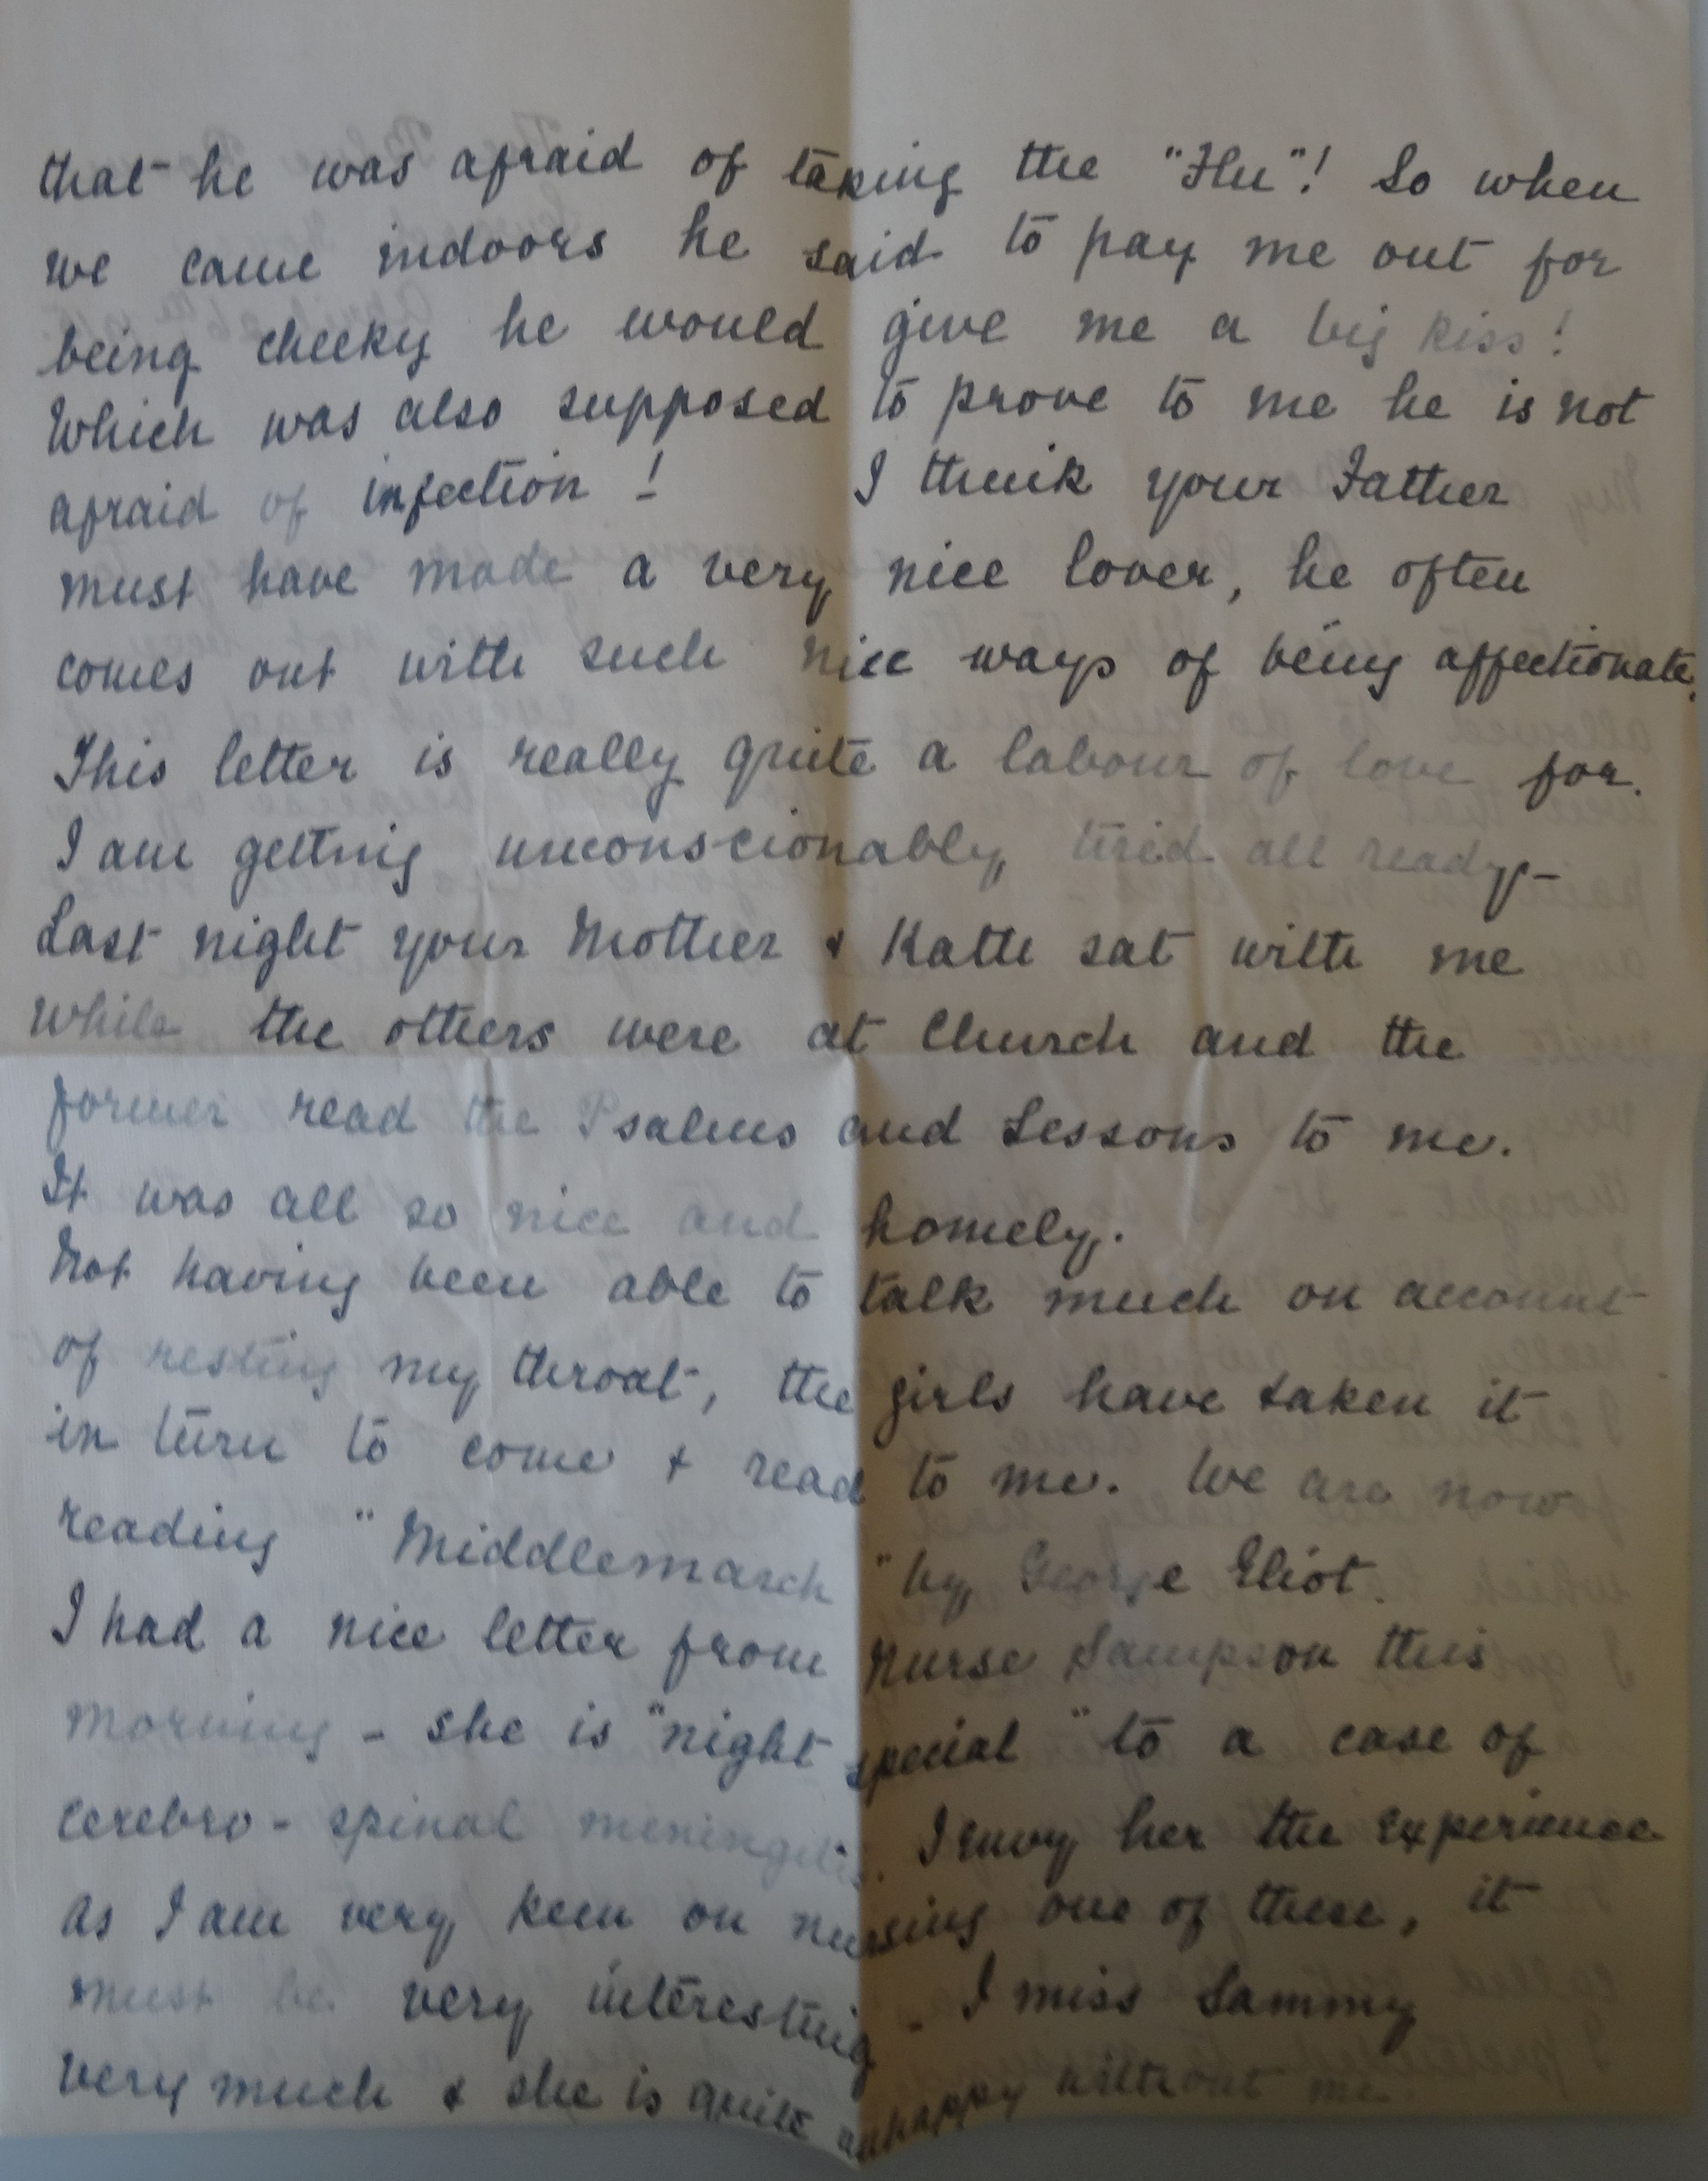 that he was afraid of taking the "Flu"! So when
we came indoors he said to pay me out for
being cheeky he would give me a big kiss!
Which was also supposed to prove to me he is not
afraid of infection! I think your Father
must have made a very nice lover, he often
comes out with such nice ways of being affectionate.
This letter is really quite a labour of love for.
I am getting unconscionably tired all ready -
Last night your Mother & Kath sat with me
while the others were at Church and the
former read the Psalms and Lessons to me.
It was all so nice and homely.
Not having been able to talk much on account
of resting my throat, the girls have taken it
in turn to come & read to me. We are now
reading "Middlemarch" by George Eliot.
I had a nice letter from Nurse Sampson this
morning - she is "night special" to a case of
cerebro-spinal meningitis. I envy her the experience
as I am very keen on nursing one of these, it
must be very interesting - I miss Sammy
very much & she is quite unhappy without me.